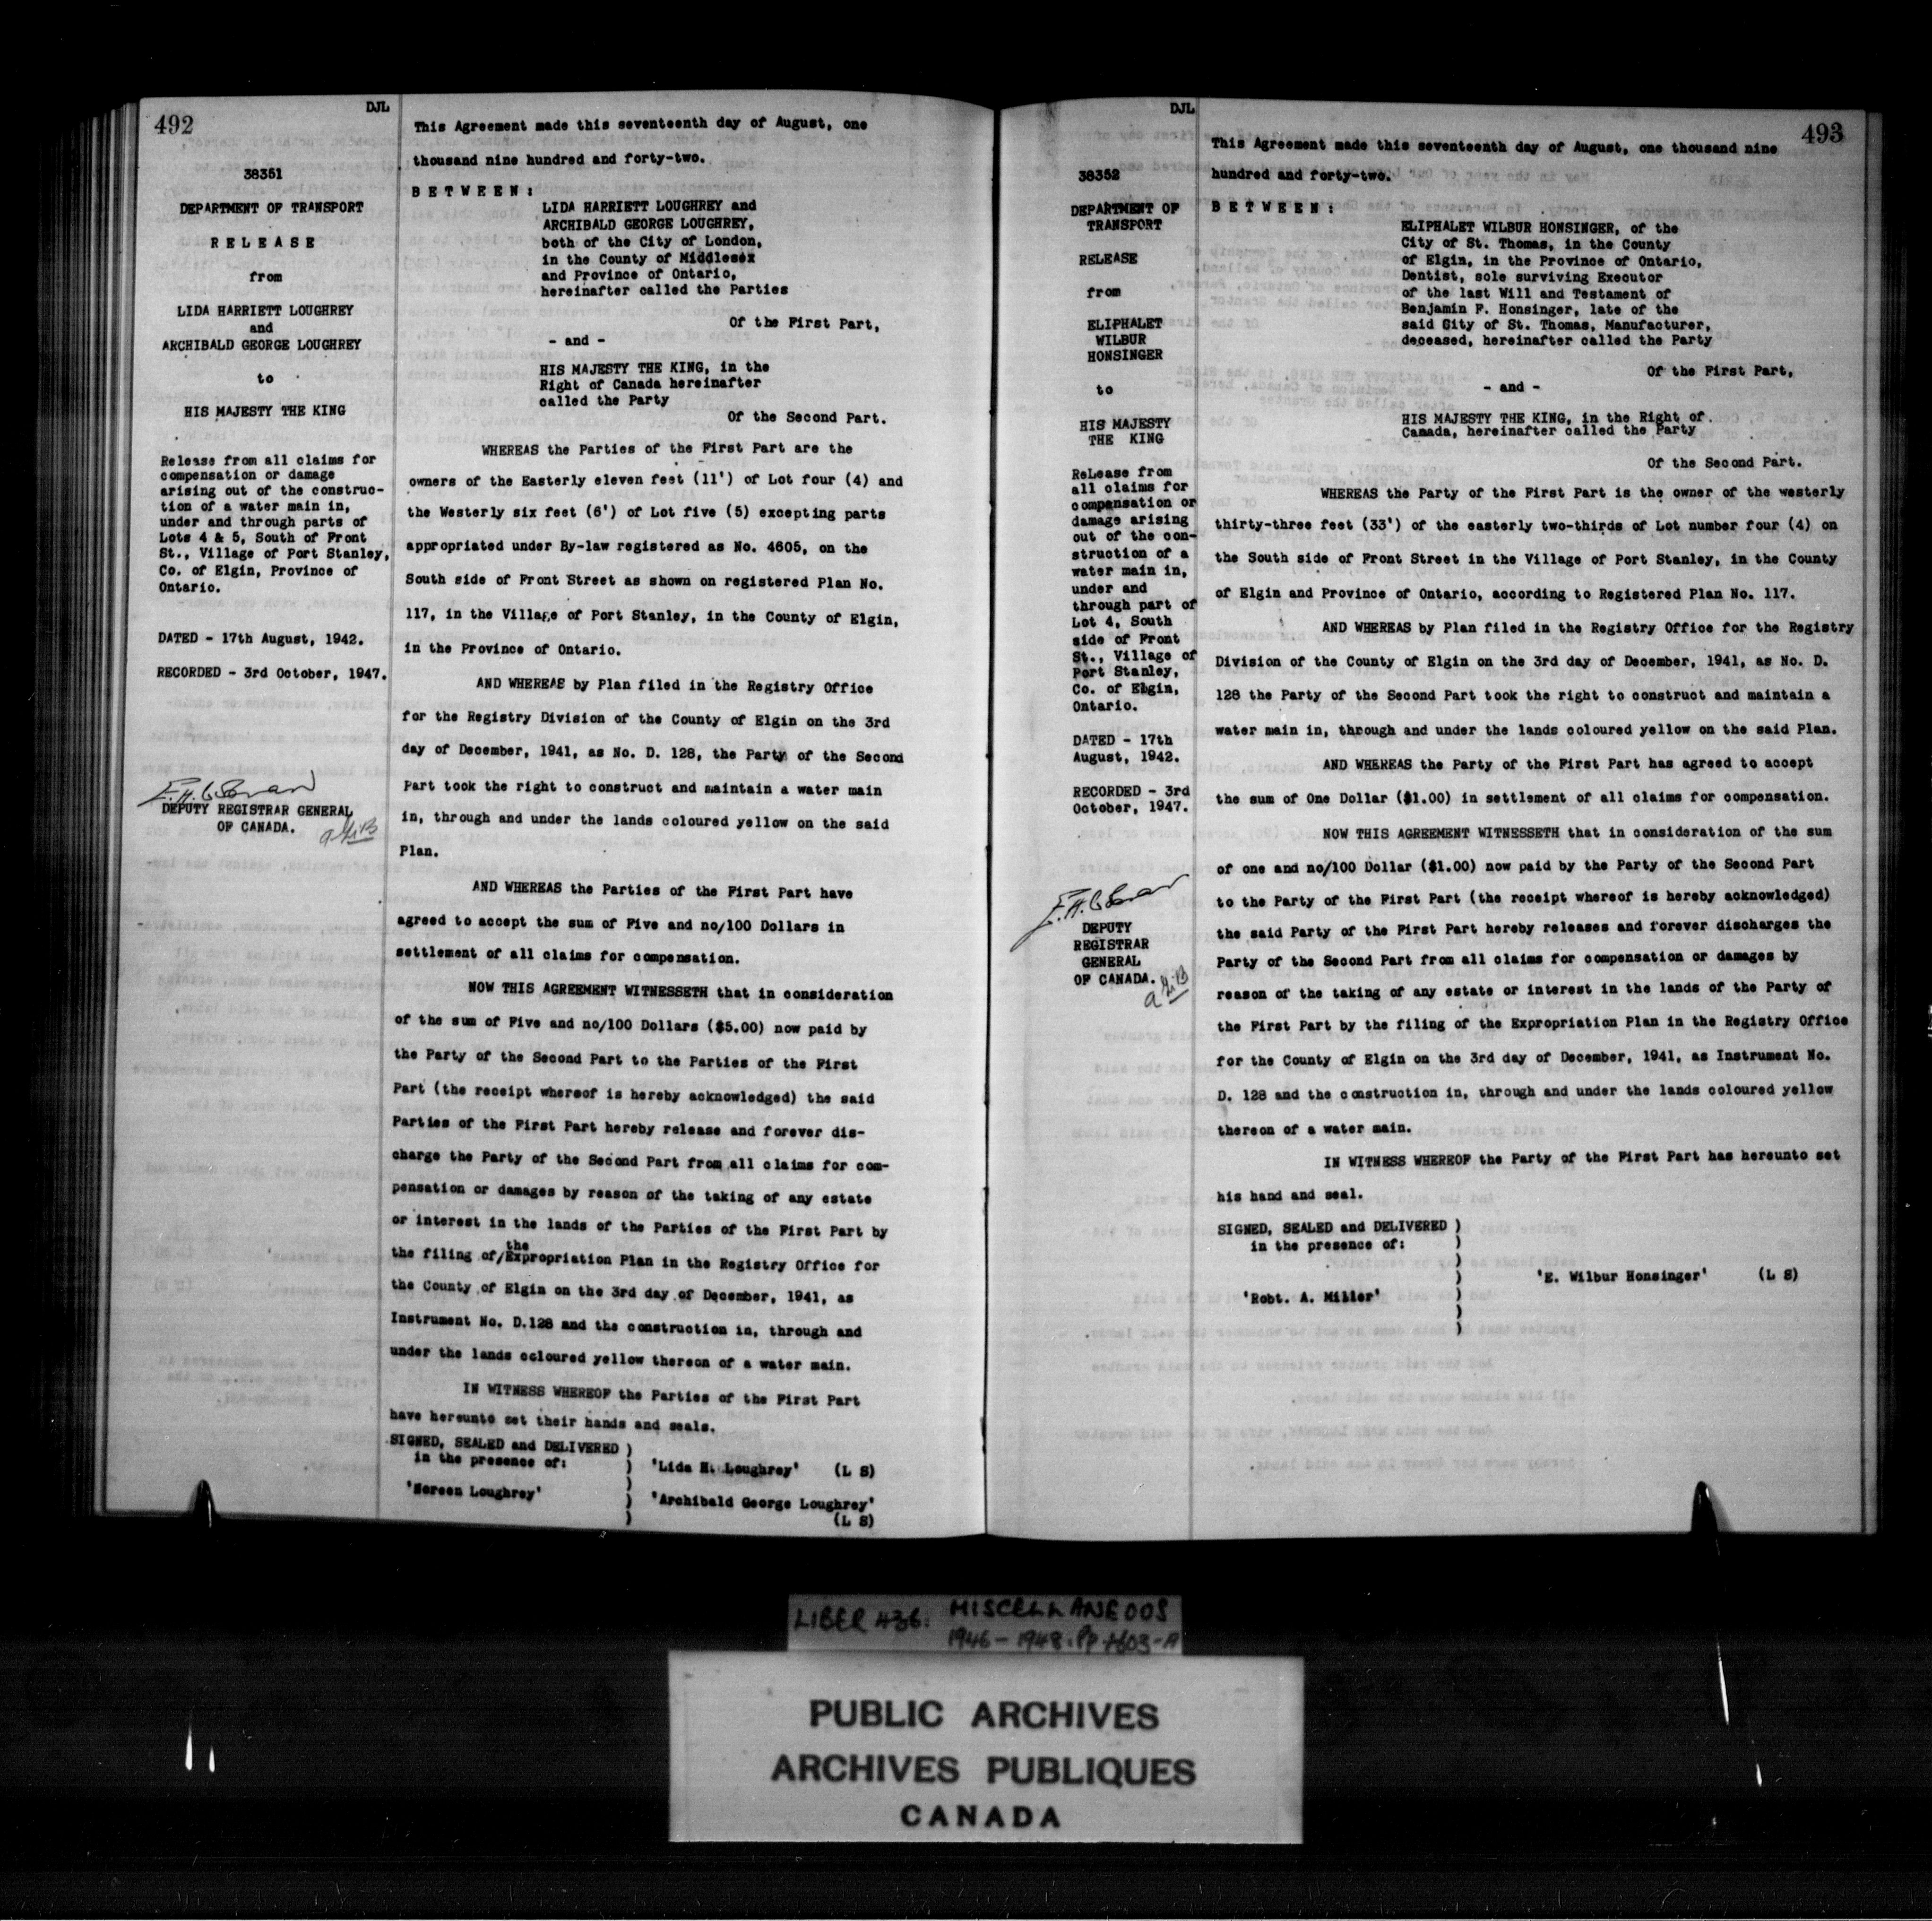 492
DJL
38351
DEPARTMENT OF TRANSPORT
R E L E A S E
from
LIDA HARRIETT LOUGHREY
and
ARCHIBALD GEORGE LOUGHREY
to
HIS MAJESTY THE KING
Release from all claims for
compensation or damage
arising out of the construc-
tion of a water main in,
under and through parts of
Lots 4 & 5, South of Front
St., Village of Port Stanley,
Co. of Elgin, Province of
Ontario.
DATED - 17th August, 1942.
RECORDED - 3rd October, 1947.
DEPUTY REGISTRAR GENERAL
OF CANADA.
This Agreement made this seventeenth day of August, one
thousand nine hundred and forty-two.
B E T W E E N :
LIDA HARRIETT LOUGHREY and
ARCHIBALD GEORGE LOUGHREY,
both of the City of London,
in the County of Middlesex
and Province of Ontario,
hereinafter called the Parties
Of the First Part,
- and -
HIS MAJESTY THE KING, in the
Right of Canada hereinafter
called the Party
Of the Second Part.
WHEREAS the Parties of the First Part are the
owners of the Easterly eleven feet (11') of Lot four (4) and
the Westerly six feet (6') of Lot five (5) excepting parts
appropriated under By-law registered as No. 4605, on the
South side of Front Street as shown on registered Plan No.
117, in the Village of Port Stanley, in the County of Elgin,
in the Province of Ontario.
AND WHEREAS by Plan filed in the Registry Office
for the Registry Division of the County of Elgin on the 3rd
day of December, 1941, as No. D. 128, the Party of the Second
Part took the right to construct and maintain a water main
in, through and under the lands coloured yellow on the said
Plan.
AND WHEREAS the Parties of the First Part have
agreed to accept the sum of Five and no/100 Dollars in
settlement of all claims for compensation.
NOW THIS AGREEMENT WITNESSETH that in consideration
of the sum of Five and no/100 Dollars ($5.00) now paid by
the Party of the Second Part to the Parties of the First
Part (the receipt whereof is hereby acknowledged) the said
Parties of the First Part hereby release and forever dis-
charge the Party of the Second Part from all claims for com-
pensation or damages by reason of the taking of any estate
or interest in the lands of the Parties of the First Part by
the
the filing of/Expropriation Plan in the Registry Office for
the County of Elgin on the 3rd day of December, 1941, as
Instrument No. D.128 and the construction in, through and
under the lands coloured yellow thereon of a water main.
IN WITNESS WHEREOF the Parties of the First Part
have hereunto set their hands and seals.
SIGNED, SEALED and DELIVERED )
in the presence of: ) 'Lida H. Loughrey' (L S)
)
'Noreen Loughrey' ) 'Archibald George Loughrey'
) (L S)
DJL
493
38352
DEPARTMENT OF
TRANSPORT
RELEASE
from
ELIPHALET
WILBUR
HONSINGER
to
HIS MAJESTY
THE KING
Release from
all claims for
compensation or
damage arising
out of the con-
struction of a
water main in,
under and
through part of
Lot 4, South
side of Front
St., Village of
Port Stanley,
Co. of Elgin,
Ontario.
DATED - 17th
August, 1942.
RECORDED - 3rd
October, 1947.
DEPUTY
REGISTRAR
GENERAL
OF CANADA.
This Agreement made this seventeenth day of August, one thousand nine
hundred and forty-two.
B E T W E E N :
ELIPHALET WILBUR HONSINGER, of the
City of St. Thomas, in the County
of Elgin, in the Province of Ontario,
Dentist, sole surviving Executor
of the last Will and Testament of
Benjamin F. Honsinger, late of the
said City of St. Thomas, Manufacturer,
deceased, hereinafter called the Party
Of the First Part,
- and -
HIS MAJESTY THE KING, in the Right of
Canada, hereinafter called the Party
Of the Second Part.
WHEREAS the Party of the First Part is the owner of the westerly
thirty-three feet (33') of the easterly two-thirds of Lot number four (4) on
the South side of Front Street in the Village of Port Stanley, in the County
of Elgin and Province of Ontario, according to Registered Plan No. 117.
AND WHEREAS by Plan filed in the Registry Office for the Registry
Division of the County of Elgin on the 3rd day of December, 1941, as No. D.
128 the Party of the Second Part took the right to construct and maintain a
water main in, through and under the lands coloured yellow on the said Plan.
AND WHEREAS the Party of the First Part has agreed to accept
the sum of One Dollar ($1.00) in settlement of all claims for compensation.
NOW THIS AGREEMENT WITNESSETH that in consideration of the sum
of one and no/100 Dollar ($1.00) now paid by the Party of the Second Part
to the Party of the First Part (the receipt whereof is hereby acknowledged)
the said Party of the First Part hereby releases and forever discharges the
Party of the Second Part from all claims for compensation or damages by
reason of the taking of any estate or interest in the lands of the Party of
the First Part by the filing of the Expropriation Plan in the Registry Office
for the County of Elgin on the 3rd day of December, 1941, as Instrument No.
D. 128 and the construction in, through and under the lands coloured yellow
thereon of a water main.
IN WITNESS WHEREOF the Party of the First Part has hereunto set
his hand and seal.
SIGNED, SEALED and DELIVERED )
in the presence of: )
)
) 'E. Wilbur Honsinger' (L S)
'Robt. A. Miller' )
)
)
LIBER 436: MISCELLANEOUS
1946-1948. Pp 1-603-A
PUBLIC ARCHIVES
ARCHIVES PUBLIQUES
CANADA